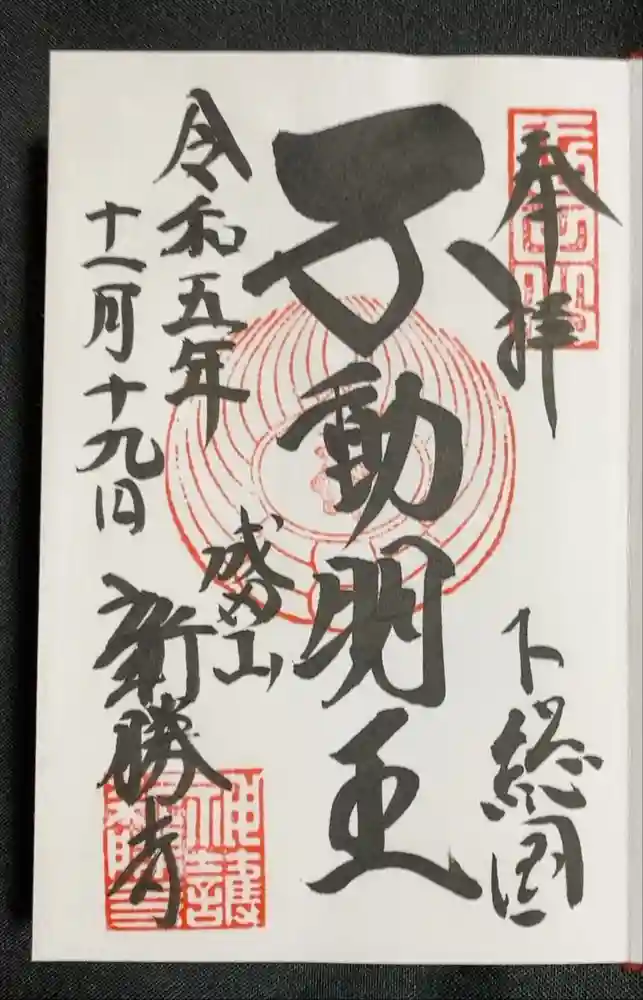 奉拝
下総国
不動明王
成田山
令和五年
十一月十九日
新勝寺
神護
新勝寺